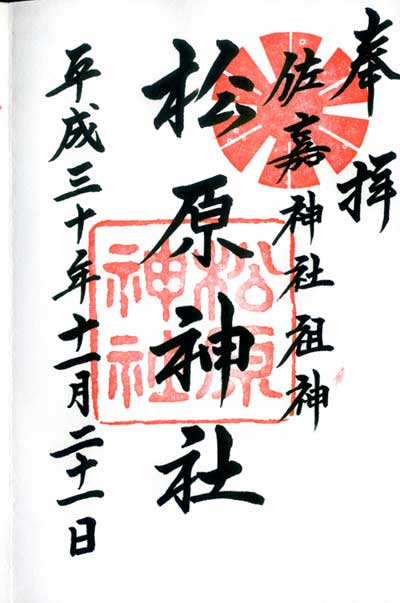 奉拝
佐嘉神社祖神
松原神社
松原神社
平成三十年十一月二十一日